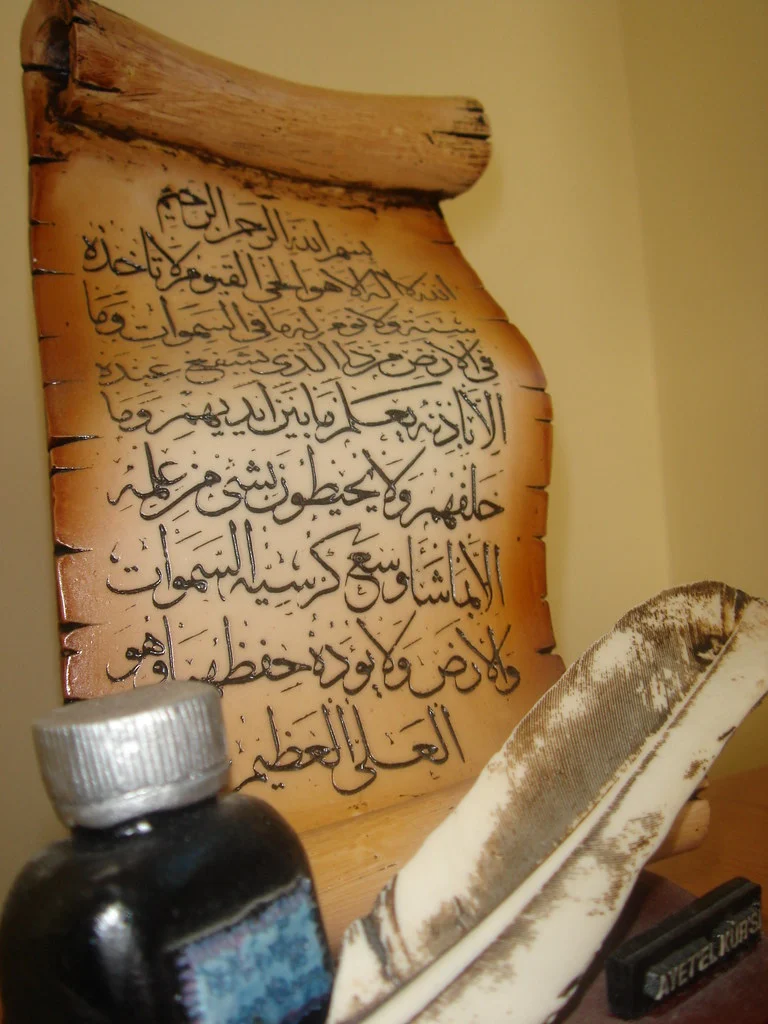 بسم الله الرحمن الرحيم
الله لا اله الا هو الحى القيوم لا تأخذه
سنة ولا نوم له ما فى السموات وما
فى الارض من ذا الذى يشفع عنده
الا باذنه يعلم ما بين ايديهم وما
خلفهم ولا يحيطون بشئ من علمه
الا بما شاء وسع كرسيه السموات
والارض ولا يؤده حفظهما وهو
العلى العظيم
AYETEL KURSİ